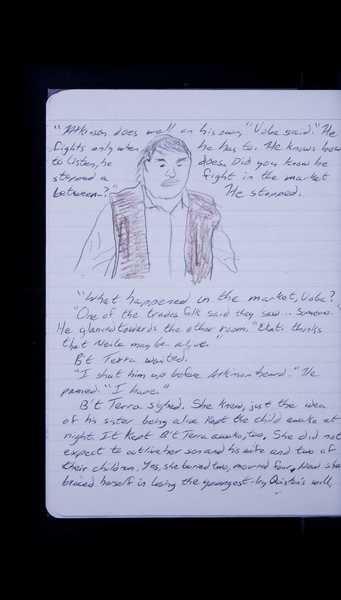 "Atkinson does well on his own," Voba said. "He
fights only when he has to. He knows how
to listen, he does. Did you know he
stopped a fight in the market
between-?" He stopped.
"What happened in the market, Voba?
"One of the trades folk said they saw... someone."
He glanced towards the other room. "Ekati thinks
that Neila may be alive."
B't Terra waited.
"I shut him up before Atkinson heard." He
paused. "I hope."
B't Terra sighed. She knew, just the idea
of his sister being alive kept the child awake at
night. It kept B't Terra awake, too. She did not
expect to outlive her son and his wife and two of
their children. Yes, she buried two, mourned four. Now she
braced herself in losing the youngest-by Quinton's will